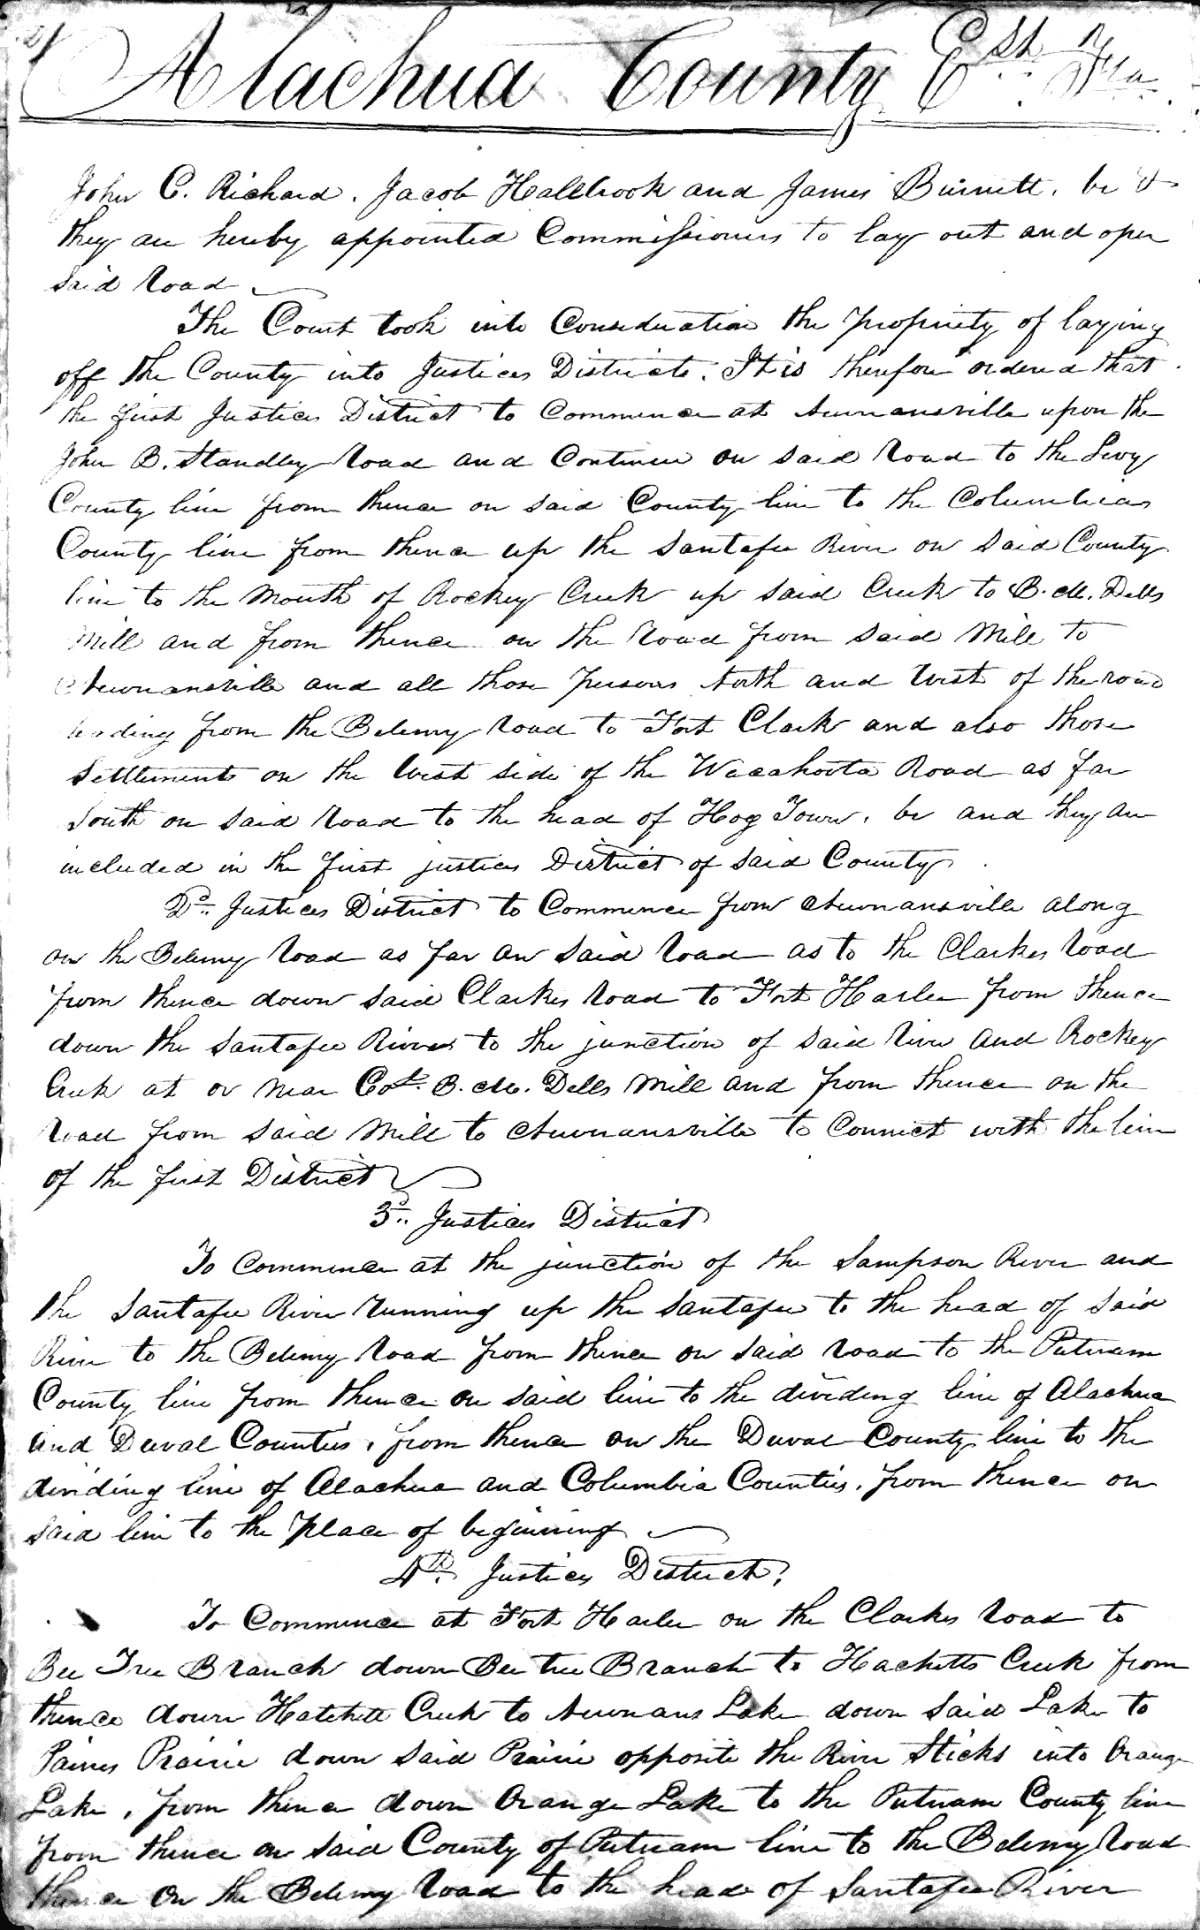 Alachua County Est Fla
John C. Richard, Jacob Halbrook and James Burnett, be &
they are hereby appointed Commissioners to lay out and open
said Road
The Court took into Consideration the propriety of laying
off the County into Justices Districts. It is therefore ordered that
the first Justices District to Commence at Newnansville upon the
John B. Standley Road and Continue on said Road to the Levy
County line from thence on said County line to the Columbia
County line from thence up the Santafee River on said County
line to the Mouth of Rockey Creek up said Creek to B. M. Dells
Mill and from thence on the Road from said Mill to
Newnansville and all those persons North and West of the road
leading from the Belemy Road to Fort Clark and also those
Settlements on the West side of the Wacahoota Road as far
South on said Road to the head of Hog Town, be and they are
included in the first justices District of said County.
2d.. Justices District to Commence from Newnansville along
on the Belemy Road as far on said Road as to the Clarkes Road
from thence down said Clarkes Road to Fort Harlee from thence
down the Santafee River to the junction of said River and Rockey
Creek at or near Col. B. M. Dells Mill and from thence on the
Road from said Mill to Newnansville to Connect with the line
of the first District
3d.. Justices District
To Commence at the junction of the Sampson River and
the Santafee River running up the Santafee to the head of said
River to the Belemy Road from thence on said Road to the Putnam
County line from thence on said line to the dividing line of Alachua
and Duval Counties, from thence on the Duval County line to the
dividing line of Alachua and Columbia Counties, from thence on
said line to the place of beginning
4th. Justices District,
To Commence at Fort Harlee on the Clarkes Road to
Bee Tree Branch down Bee tree Branch to Hachetts Creek from
thence down Hatchett Creek to Newnans Lake down said Lake to
Paines Prairie down said Prairie opposite the River Sticks into Orange
Lake, from thence down Orange Lake to the Putnam County line
from thence on said County of Putnam line to the Belemy Road
thence on the Belemy Road to the head of Santafee River